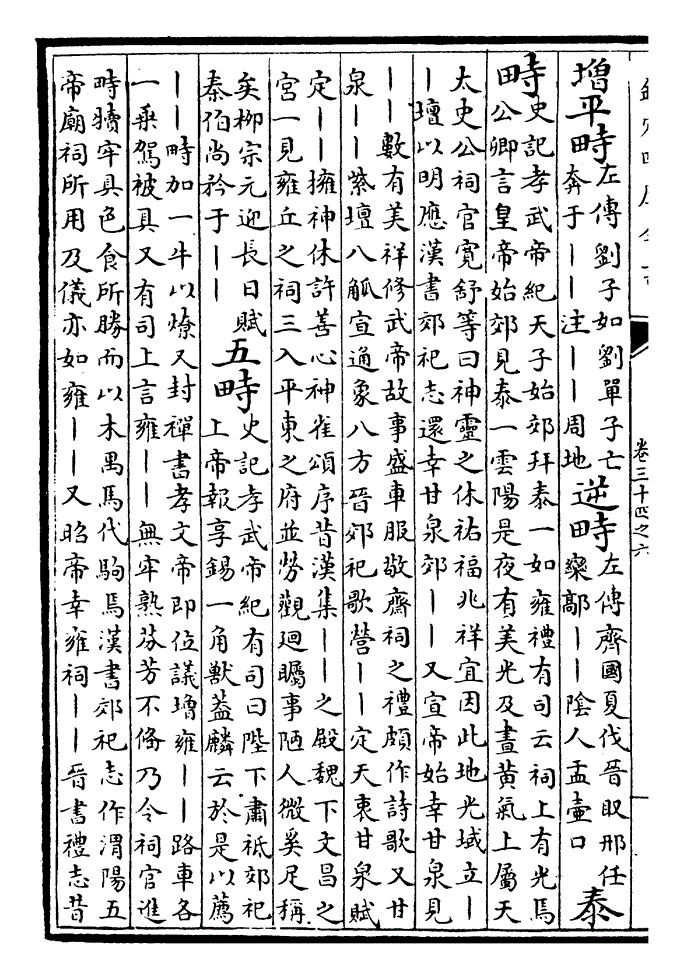 欽定四庫全書
卷三十四之六
增平畤
左傳劉子如劉單子亡
奔于||注||周地
逆畤
左傳齊國夏伐晉取邢任
欒鄗||陰人盂壺口
泰
畤
史記孝武帝紀天子始郊拜泰一如雍禮有司云祠上有光焉
公卿言皇帝始郊見泰一雲陽是夜有美光及晝黄氣上屬天
太史公祠官寛舒等曰神靈之休祐福兆祥宜因此地光域立|
|壇以明應漢書郊祀志還幸甘泉郊||又宣帝始幸甘泉見
||數有美祥修武帝故事盛車服敬齋祠之禮頗作詩歌又甘
泉||紫壇八觚宣通象八方晉郊祀歌營||定天衷甘泉賦
定||擁神休許善心神雀頌序昔漢集||之殿魏下文昌之
宫一見雍丘之祠三入平東之府並勞觀迴矚事陋人微奚足稱
矣柳宗元迎長日賦
秦伯尚矜于||
五畤
史記孝武帝紀有司曰陛下肅祗郊祀
上帝報享錫一角獸蓋麟云於是以薦
||畤加一牛以燎又封禪書孝文帝即位議增雍||路車各
一乘駕被具又有司上言雍||無牢熟芬芳不備乃令祠官進
畤犢牢具色食所勝而以木禺馬代駒焉漢書郊祀志作渭陽五
帝廟祠所用及儀亦如雍||又昭帝幸雍祠||晉書禮志昔